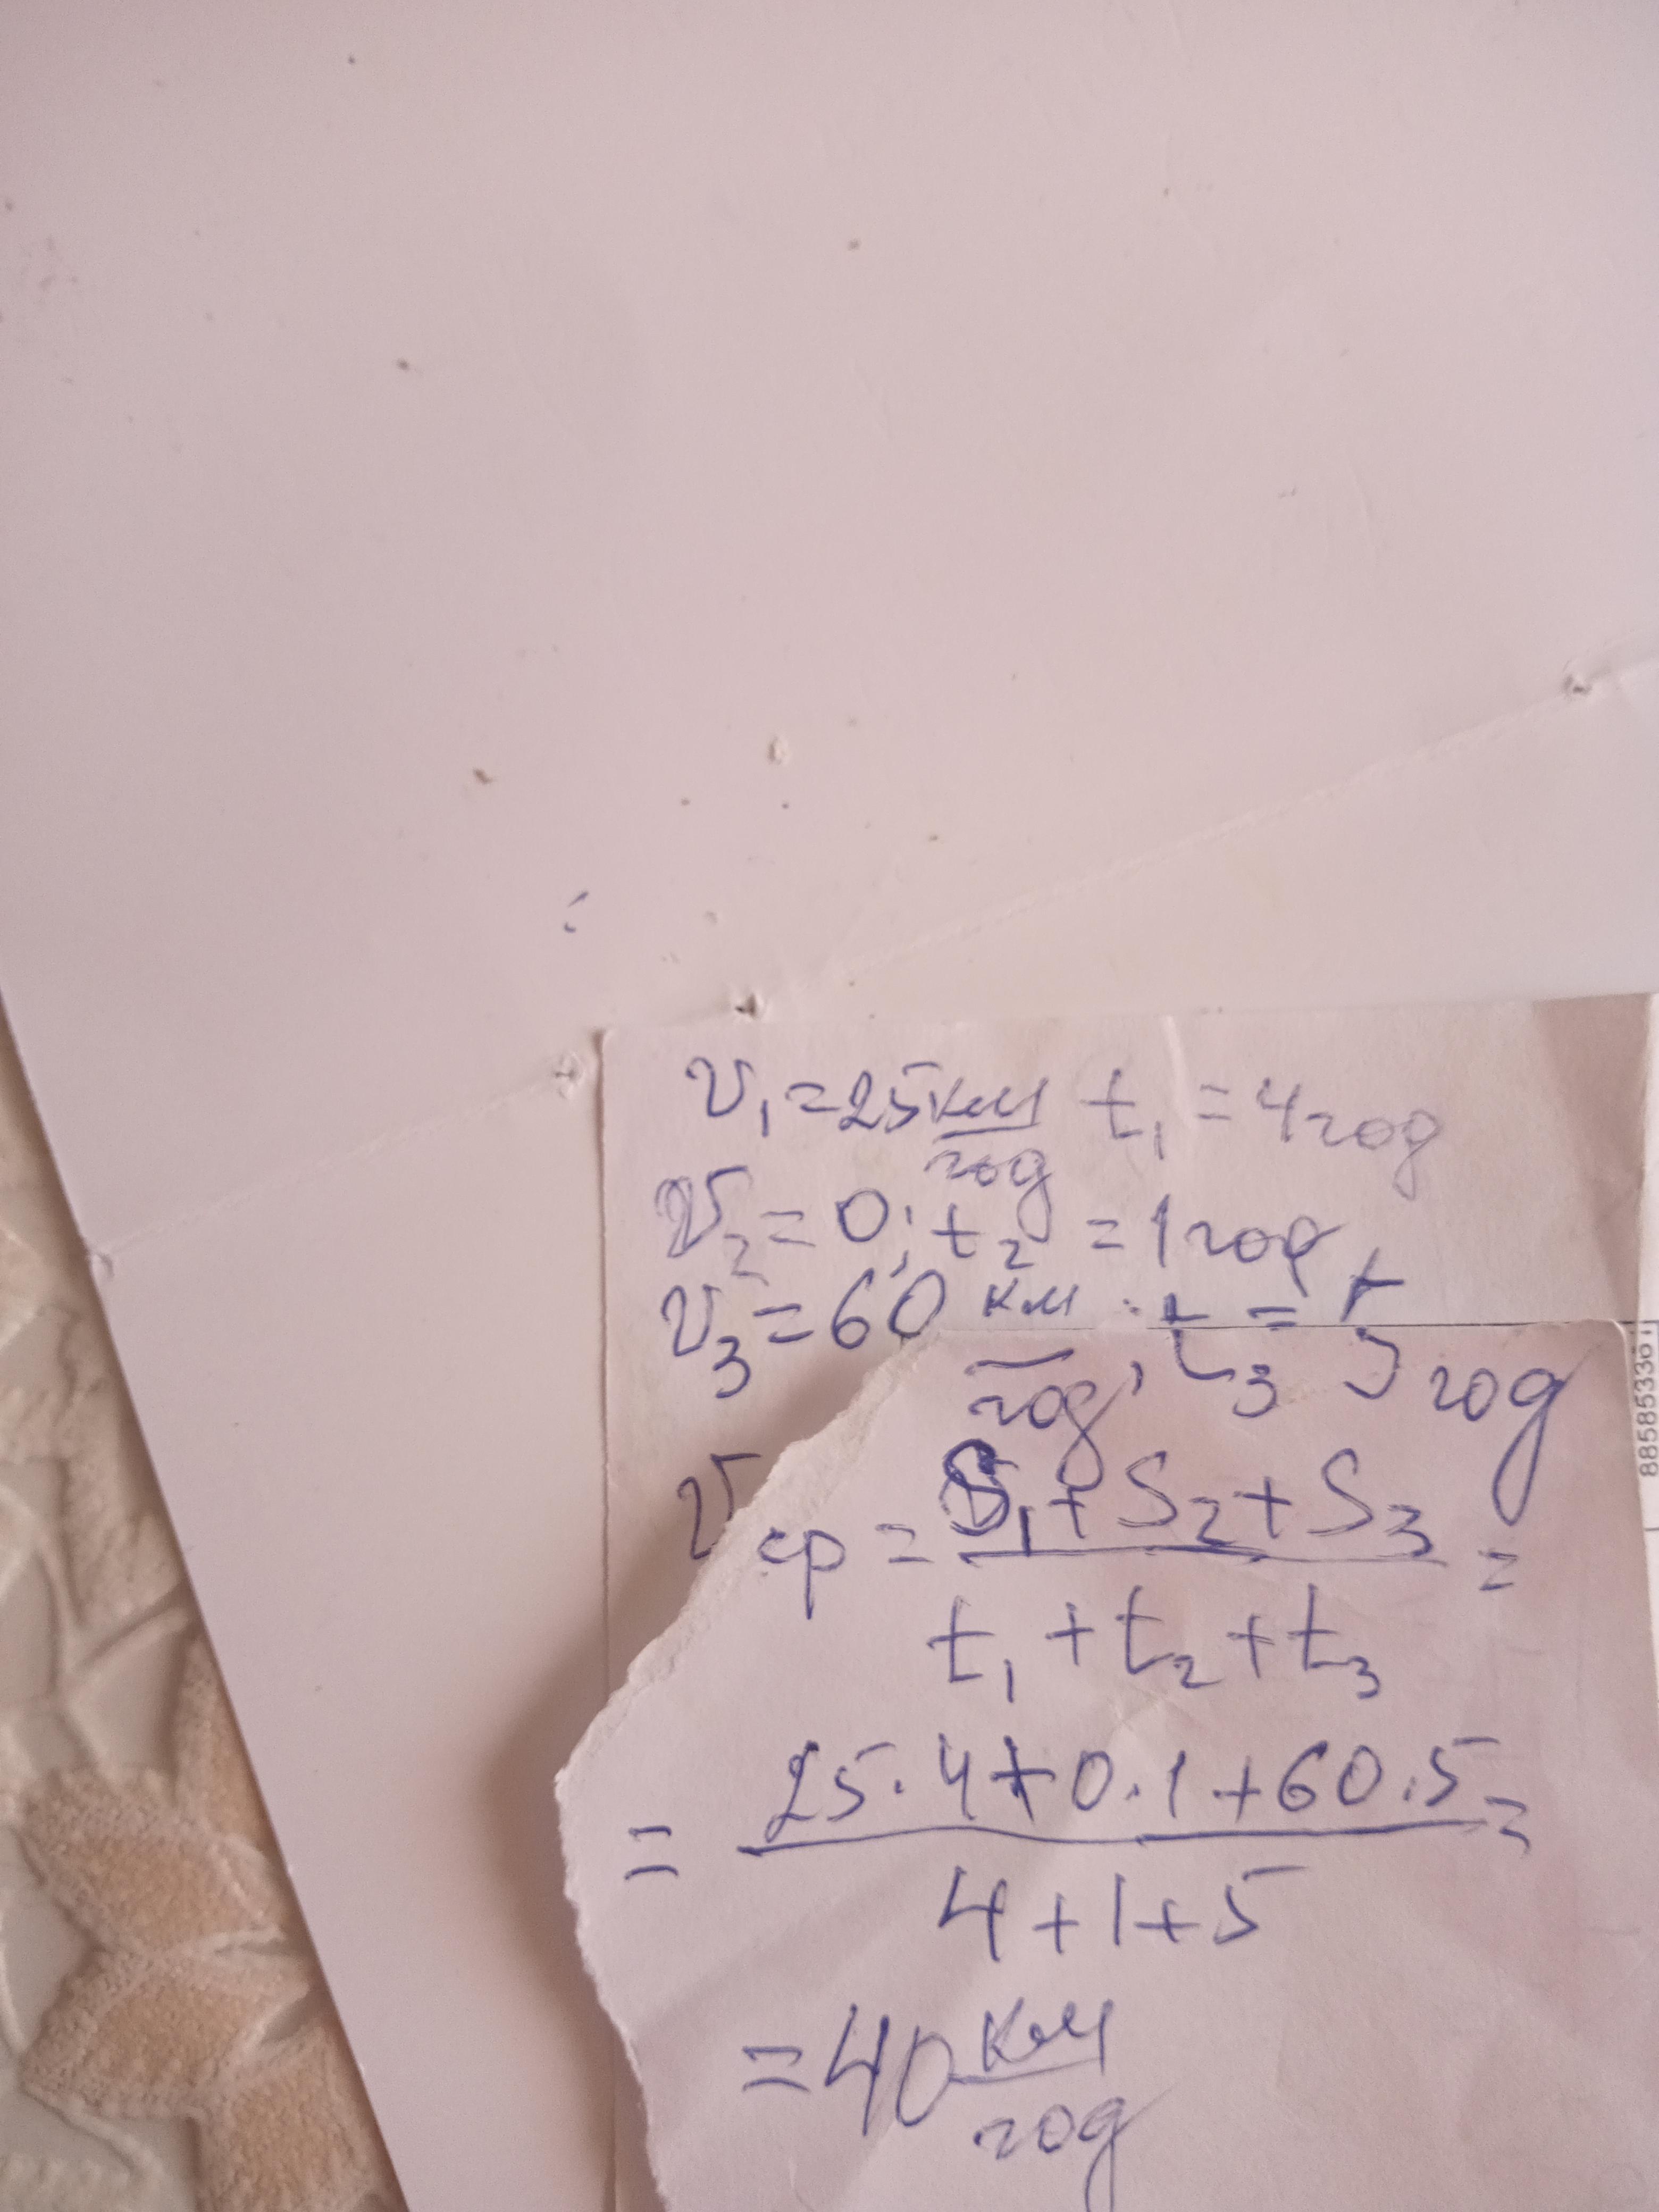 v₁ = 25 км/год t₁ = 4 год
v₂ = 0; t₂ = 1 год
v₃ = 60 км/год; t₃ = 5 год
vср = (S₁ + S₂ + S₃)/(t₁ + t₂ + t₃) =
= (25·4 + 0·1 + 60·5)/(4 + 1 + 5) =
= 40 км/год